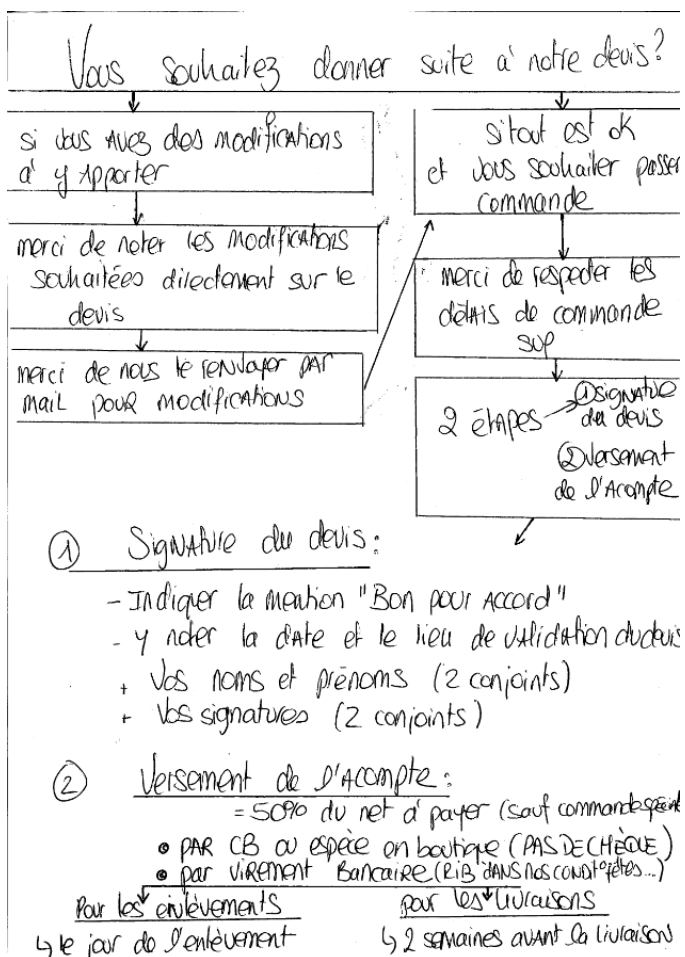 Vous souhaitez donner suite à notre devis?
si vous avez des modifications
à y apporter
merci de noter les modifications
souhaitées directement sur le
devis
merci de nous le renvoyer par
mail pour modifications
si tout est ok
et vous souhaiter passer
commande
merci de respecter les
délais de commande
sup
2 étapes
① signature
du devis
② versement
de l'acompte
① Signature du devis :
- Indiquer la mention "Bon pour accord"
- y noter la date et le lieu de validation du devis
+ Vos noms et prénoms (2 conjoints)
+ Vos signatures (2 conjoints)
② Versement de l'acompte :
= 50% du net à payer (sauf commande
• PAR CB ou espèce en boutique (PAS DE CHÈQUE)
• par virement Bancaire (RIB DANS NOS
Pour les enlèvements
↳ le jour de l'enlèvement
pour les livraisons
↳ 2 semaines avant la livraison